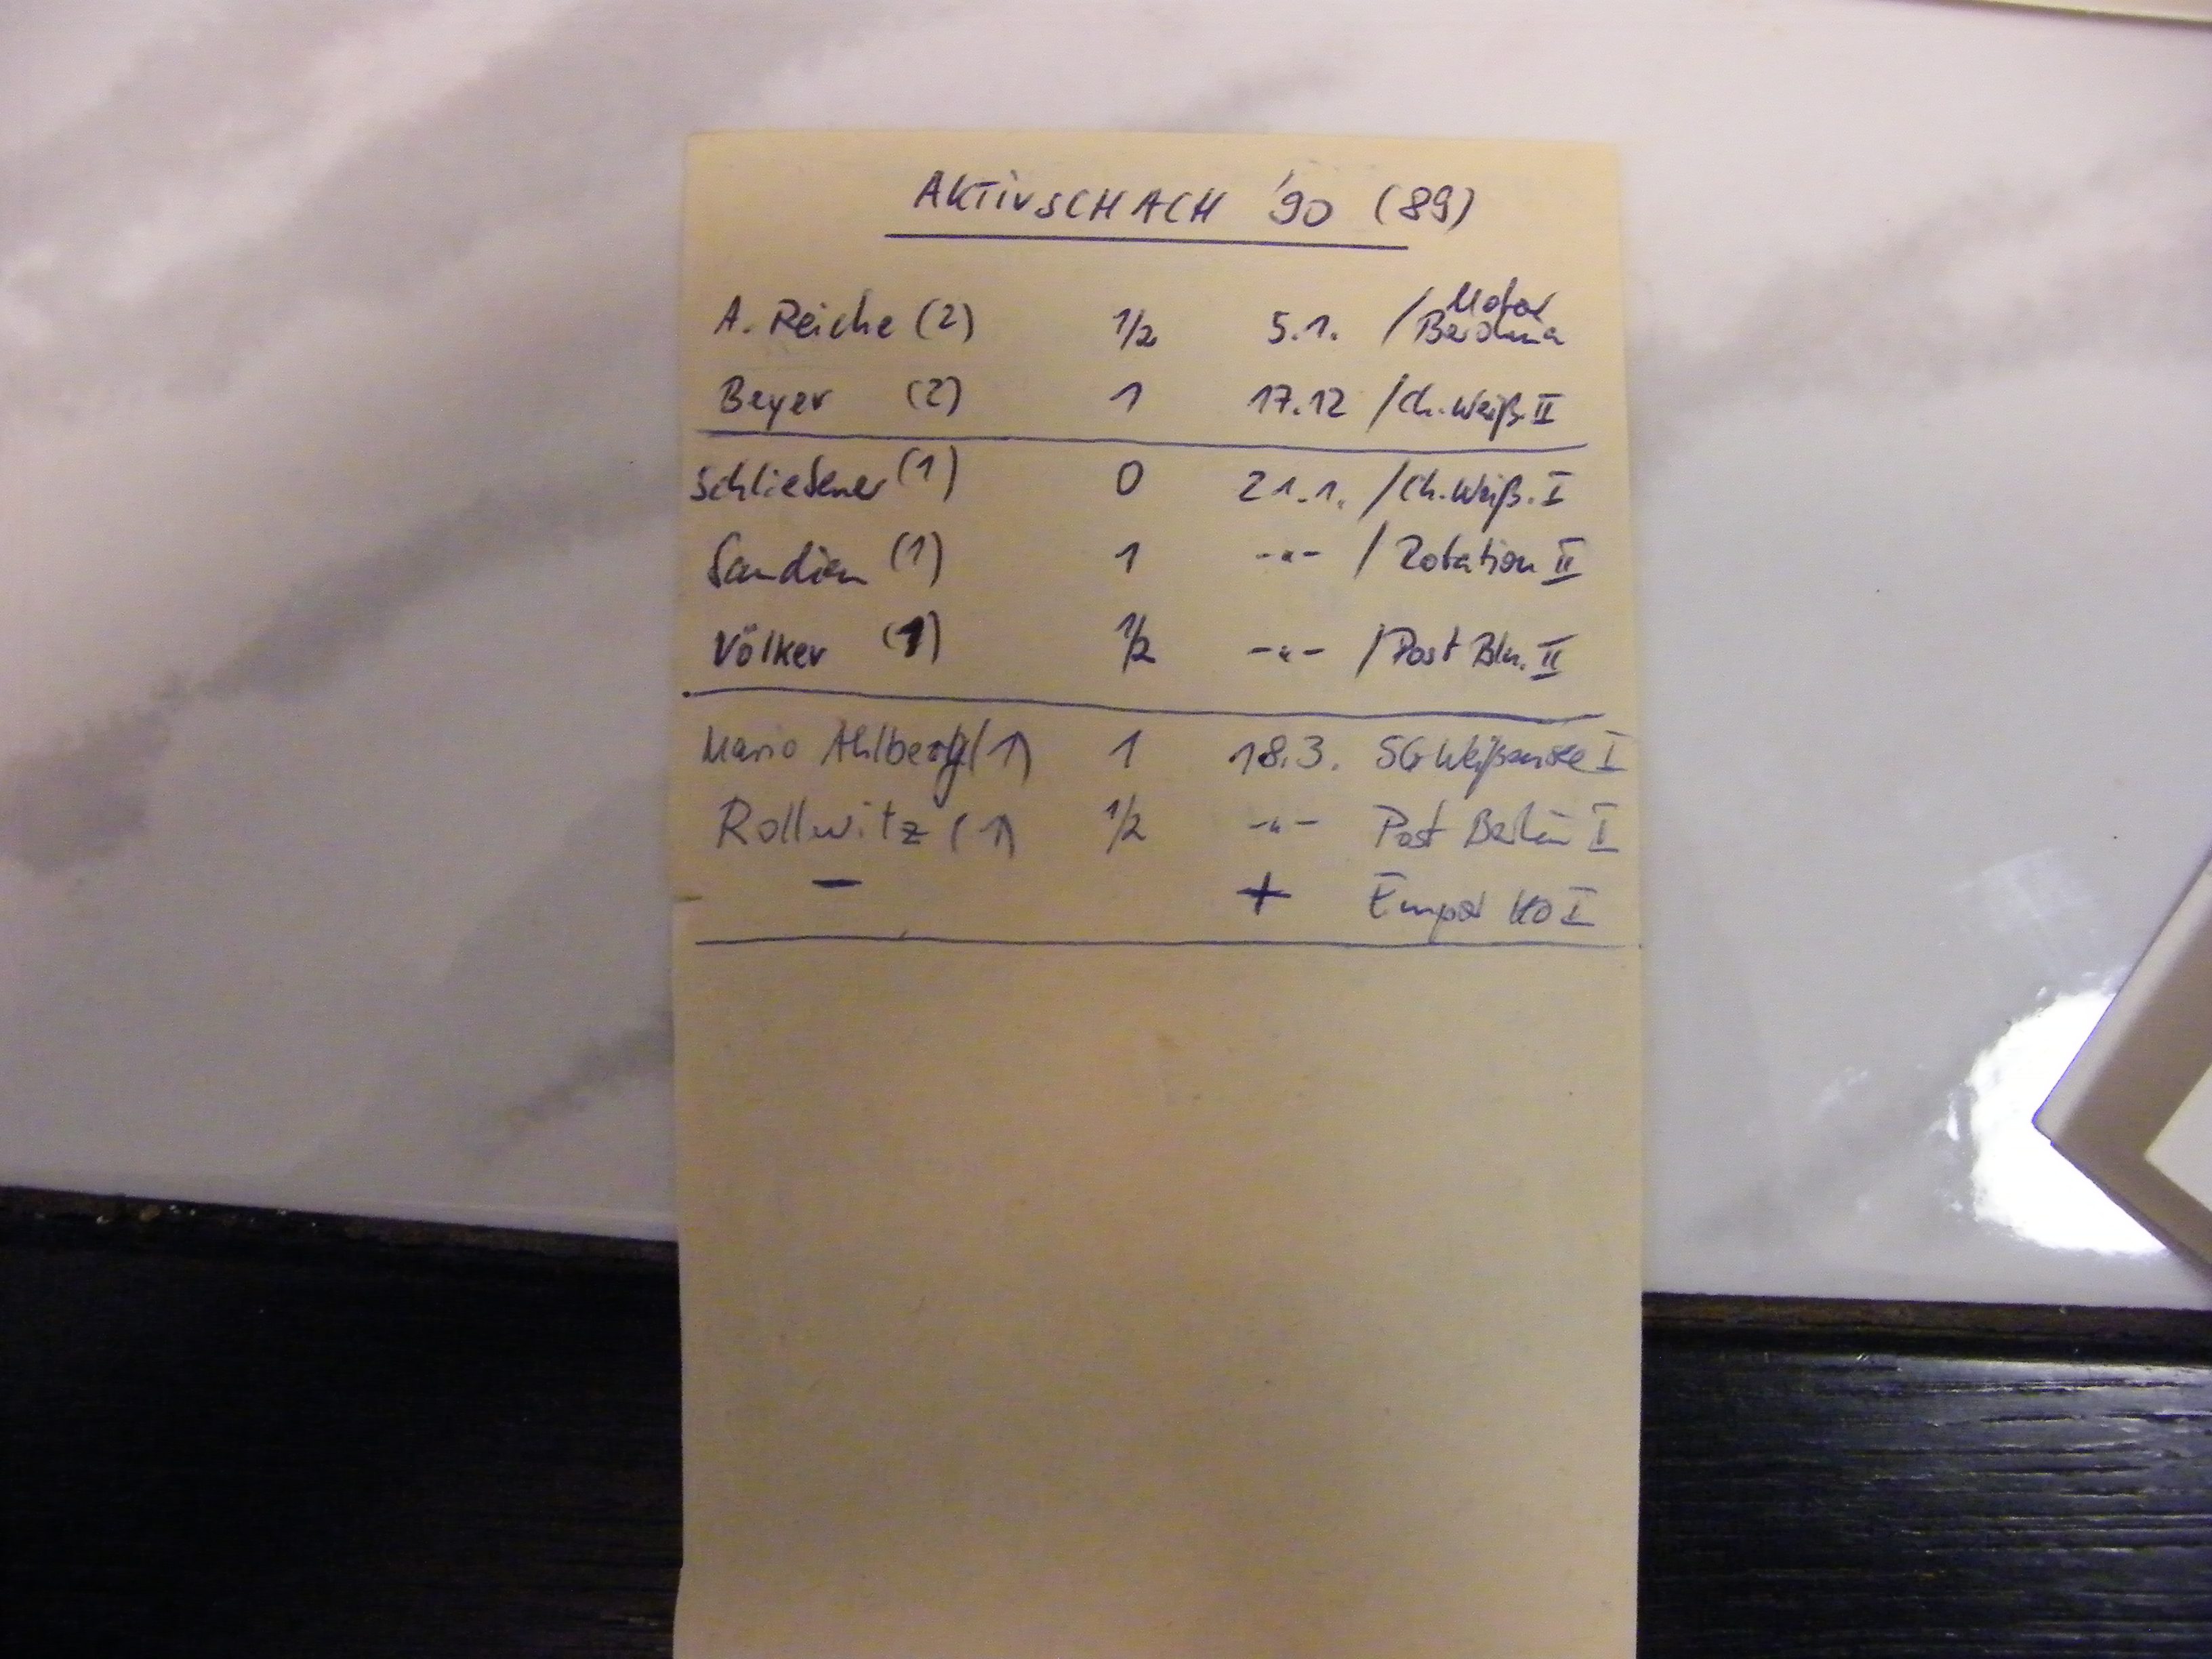 AKTIVSCHACH '90 (89)
A. Reiche (2) 1/2 5.1. / Motor Barolina
Beyer (2) 1 17.12 / Ch. Weiß. II
Schliefener (1) 0 21.1. / Ch. Weiß. I
(1) 1 -"- / Rotation II
Völker (1) 1/2 -"- / Post Bln. II
Mario Ahlberg (1) 1 18.3. SG Weißensee I
Rollwitz (1) 1/2 -"- Post Berlin I
– + Empor HO I